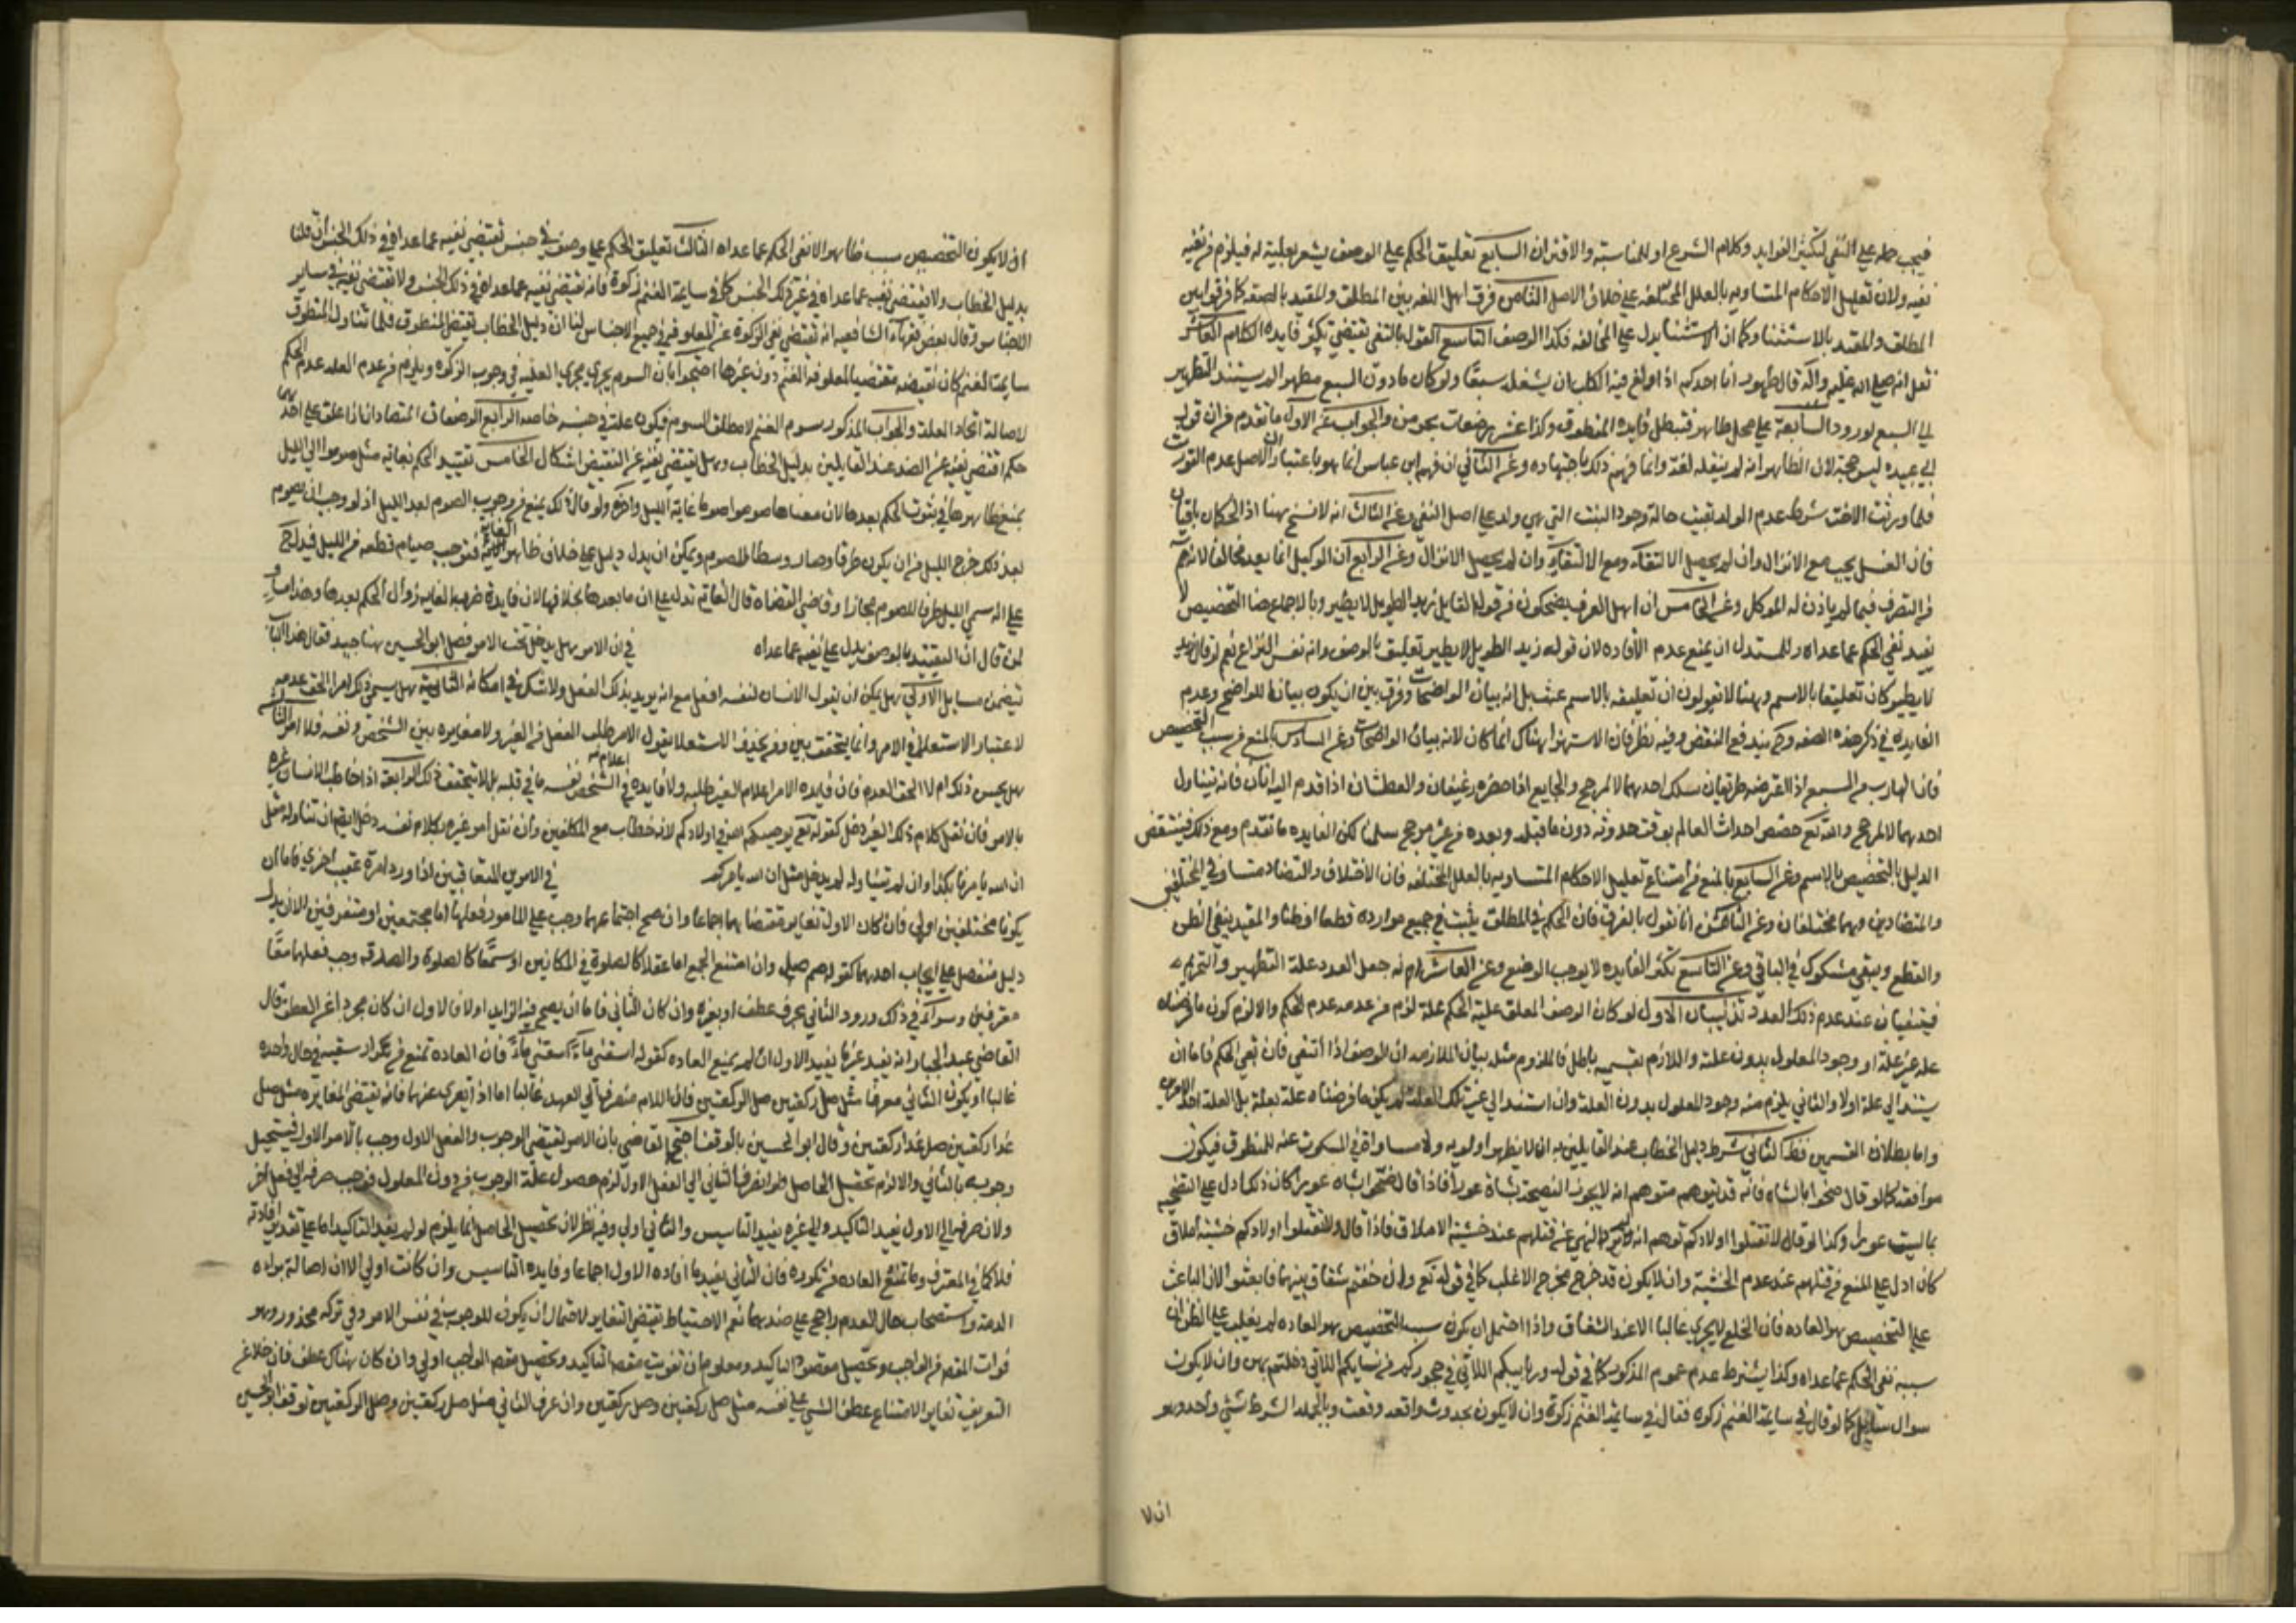 فيجب حمله على النفى لتكثير الفوايد وكلام الشرع او المناسبة والاقتران السابع تعليق الحكم على الوصف يشعر بعلية له فيلزم من نفيه
نفيه ولان تعليل الاحكام المتساويه بالعلل المختلفه على خلاف الاصل الثامن فرق اهل اللغه بين المطلق والمقيد بالصفه كما فرقوا بين
المطلق والمقيد بالاستثنا وكما ان الاستثنا يدل على المخالفه فكذا الوصف التاسع القول بالنفى يقتضى تكثر فايده الكلام العاشر
نقل انه صلى الله عليه وآله قال طهور انا احدكم اذا ولغ فيه الكلب ان يغسله سبعًا ولو كان مادون السبع مطهرا لم يستند التطهير
الى السبع لورود السابعة على محل طاهر فتبطل فايده المنطوق وكذا عشر رضعات يحرمن والجواب عن الاول ما تقدم من ان قول
ابى عبيده ليس حجة لان الظاهر انه لم ينقله لغة وانما فهم ذلك باجتهاده وعن الثانى ان فهم ابن عباس انما هو باعتبار ان الاصل عدم التوريث
فلما ورثت الاخت شرط عدم الولد بقيت حالة وجود البنت التى هى ولد على اصل النفى وعن الثالث انه لا نسخ هنا اذ الحكمان باقيان
فان الغسل يجب مع الانزال وان لم يحصل الالتقاء ومع الالتقاء وان لم يحصل الانزال وعن الرابع ان الوكيل انما يعد مخالفا لانه
من التصرف فيما لم ياذن له الموكل وعن الخامس ان اهل العرف يضحكون من قول القايل زيد الطويل لا يطير وبالاجماع هذا التخصيص لا
يفيد نفى الحكم عما عداه وللمستدل ان يمنع عدم الافاده لان قوله زيد الطويل لا يطير تعليق بالوصف وانه نفس النزاع نعم لو قال زيد
لا يطير كان تعليقا بالاسم وهنا لا تقولون ان تعليقه بالاسم عبث بل انه بيان الواضحات وفرق بين ان يكون بيانا للواضح وعدم
الفايده فى ذكر هذه الصفه وح يندفع النقض وفيه نظر فان الاستهزا هناك انما كان لانه بيان الواضحات وعن السادس بالمنع من سبب التخصيص
فان الهارب من السبع اذا اعترضه طريقان سلك احدهما لا لمرجح والجايع اذا احضره رغيفان والعطشان اذا قدم اليه اناآن فانه يتناول
احدهما لا لمرجح والله تع خصص احداث العالم بوقت حدوثه دون ما قبله وبعده من غير مرجح سلمنا لكن الفايده ما تقدم ومع ذلك فينتقض
الدليل بالتخصيص بالاسم وعن السابع بالمنع من امتناع تعليل الاحكام المتساويه بالعلل المختلفه فان الاختلاف والتضاد متساو فى المختلفين
والمتضادين وهما مختلفان وعن الثامن انا نقول بالفرق فان الحكم فى المطلق يثبت فى جميع موارده قطعا او ظنا والمقيد ينفى الظن
والقطع ويبقى مشكوك فى الباقى وعن التاسع تكثر الفايده لا يوجب الوضع وعن العاشر انه جعل العدد علة التطهير والتحريم
فينتفيان عند عدم ذلك العدد تذنيبان الاول لو كان الوصف المعلق عليه الحكم علة لزم من عدمه عدم الحكم والا لزم كون ما فرضناه
علة غير علة او وجود المعلول بدون علته واللازم بقسميه باطل فالملزوم مثله بيان الملازمه ان الوصف اذا انتفى فان بقى الحكم فاما ان
يستند الى علة اولا والثانى يلزم منه وجود المعلول بدون العلة وان استند الى غير تلك العلة لم يكن ما فرضناه علة بعلة بل العلة احد الامرين
واما بطلان القسمين فظ الثانى شرط دليل الخطاب عند القايلين به ان لا يظهر اولويه ولا مساواة فى المسكوت عنه للمنطوق فيكون
موافقه كما لو قال ضحوا بالشاه فانه قد يتوهم متوهم انه لا يجوز التضحيه بشاة عورا فاذا قال ضحوا بشاه عورا كان ذلك ادل على التضحيه
بما ليست عورا وكذا لو قال لا تقتلوا اولادكم توهم انه لم يرد النهى عن قتلهم عند خشية الاملاق فاذا قال ولا تقتلوا اولادكم خشية املاق
كان ادل على المنع من قتلهم عند عدم الخشية وان لا يكون قد خرج مخرج الاغلب كما فى قوله تع وان خفتم شقاق بينهما فابعثوا لان الباعث
على التخصيص هو العاده فان الخلع لا يجرى غالبا الا عند الشقاق واذا احتمل ان يكون سبب التخصيص هو العاده لم يغلب على الظن ان
سببه نفى الحكم عما عداه وكذا يشترط عدم عموم المذكور كما فى قوله وربايبكم اللاتى فى حجوركم من نسايكم اللاتى دخلتم بهن وان لا يكون
سوال سايل كما لو قال فى سايمة الغنم زكوة فقال فى سايمة الغنم زكوة وان لا يكون بحدوث واقعه وقعت وبالجمله الشرط شىء واحد وهو
ان لا
ان لا يكون التخصيص سبب ظاهر الا نفى الحكم عما عداه الثالث تعليق الحكم على وصف فى جنس تقتضى نفيه عما عداه فى ذلك الجنس ان قلنا
بدليل الخطاب ولا يقتضى نفيه عما عداه فى غير ذلك الجنس كما فى سايمة الغنم زكوة فانه يقتضى نفيه عما عداه فى ذلك الجنس ولا تقتضى نفيه فى ساير
الاجناس وقال بعض فقهاء الشافعيه انه تقتضى نفى الزكوة عن المعلوفه فى جميع الاجناس لنا ان دليل الخطاب نقيض المنطوق فلما تناول المنطوق
سايمة الغنم كان نقيضه مقتضيا لمعلوفه الغنم دون غيرها احتجوا بان السوم يجرى مجرى العلة فى وجوب الزكوة ويلزم من عدم العله عدم الحكم
لاصالة اتحاد العلة والجواب المذكور سوم الغنم لا مطلق السوم فيكون علة فى جنسه خاصه الرابع الوصفان المتضادان اذا علق على احدهما
حكم اقتضى نفيه عن الضد عند القايلين بدليل الخطاب وهل يقتضى نفيه عن النقيض اشكال الخامس تقييد الحكم بغاية مثل صوموا الى الليل
يمنع ظاهرها فى ثبوت الحكم بعدها لان معناها صوموا صوما غاية الليل واخره ولو قال ذلك يمنع من وجوب الصوم بعد الليل اذ لو وجب ان يصوم
بعد ذلك خرج الليل من ان يكون طرفا وصار وسطا للصوم ويمكن ان يدل دليل على خلاف ظاهر الغاية فتوجب صيام قطعه من الليل فيدل ح
على انه سمى الليل طرفا للصوم مجازا وقاضى القضاة قال الغاية تدل على ان ما بعدها بخلافها لان فايدة ضربه الغايه زوال الحكم بعدها وهذا مساو
لمن قال ان التقييد بالوصف يدل على نفيه عما عداه فى ان الامر هل يدخل تحت الامر فصل ابو الحسين هنا جيد فقال هذا الباب
يتضمن مسايل الاولى هل يمكن ان يقول الانسان لنفسه افعل مع انه يريد بذلك الفعل ولا شك فى امكانه الثانية هل يسمى ذلك امرا الحق عدمه
لاعتبار الاستعلا فى الامر وانما يتحقق بين ومن يحذف الاستعلا يقول الامر طلب الفعل من الغير ولا مغايره بين الشخص ونفسه فلا امر الثالثه
هل يحسن ذلك ام لا الحق العدم فان فايده الامر اعلام الغير طلبه ولا فايده فى اعلام الشخص نفسه ما فى قلبه بل لا يتحقق ذلك الرابعة اذا خاطب الانسان غيره
بالامر فان نقل كلام ذلك الغير دخل كقوله تع يوصيكم الله فى اولادكم لانه خطاب مع المكلفين وان نقل امر غيره بكلام نفسه دخل ايضا ان تناوله مثل
ان الله يامرنا بكذا وان لم تتناوله لم يدخل مثل ان الله يامركم فى الامرين المتعاقبين اذا ورد امرة عقيب اخرى فاما ان
يكونا مختلفين اولا فان كان الاول تغاير مقتضاهما اجماعا وان صح اجتماعهما وجب على المامور فعلهما اما مجتمعين او متفرقين الا ان يدل
دليل منفصل على ايجاب احدهما كقوله صم صل وان امتنع الجمع اما عقلا كالصلوة فى المكانين او سمعًا كالصلوة والصدقه وجب فعلهما معًا
مفترقين وسواء فى ذلك ورود الثانى بحرف عطف او بغيره وان كان الثانى فاما ان يصح فيه التزايد اولا فالاول ان كان مجردا عن العطف قال
القاضى عبد الجبار انه يفيد غير ما يفيد الاول ان لم تمنع العاده كقوله اسقنى ماءً اسقنى ماءً فان العاده تمنع من تكرار سقيه فى حال واحده
غالبا او يكون الثانى معرفا مثل صل ركعتين صل الركعتين فان اللام منصرفة الى العهد غالبا اما اذا تعرى عنهما فانه تقتضى المغايره مثل صل
غدا ركعتين صل غدا ركعتين وقال ابو الحسين بالوقف احتج القاضى بان الامر يقتضى الوجوب والفعل الاول وجب بالامر الاول فيستحيل
وجوبه بالثانى والا لزم تحصيل الحاصل فلو انصرف الثانى الى الفعل الاول لزم حصول علة الوجوب من دون المعلول فوجب صرفه الى فعل اخر
ولان صرفه الى الاول يفيد التاكيد والى غيره يفيد التاسيس والثانى اولى وفيه نظر لان تحصيل الحاصل انما يلزم لو لم يفد التاكيد اما على تقدير افادته
فلا كما فى المعترف وما تمنع العاده من تكرره فان الثانى يفيد ما افاده الاول اجماعا وفايده التاسيس وان كانت اولى الا ان اصالة براءه
الذمة واستصحاب حال العدم راجح على ضدهما نعم الاحتياط تقتضى التغاير لاحتمال ان يكون للوجوب فى نفس الامر وفى تركه محذور وهو
فوات المقصد من الواجب وتحصيل مقصود التاكيد ومعلوم ان تفويت مقصد التاكيد وتحصيل مقصد الواجب اولى وان كان هناك عطف فان خلا عن
التعريف تغاير الامتناع عطف الشىء على نفسه مثل صل ركعتين وصل ركعتين وان عرف الثانى مثل صل ركعتين وصل الركعتين توقف ابو الحسين